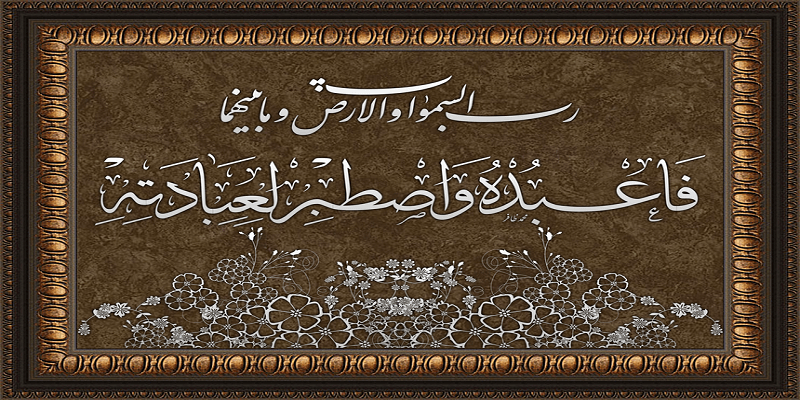 رب السموات والارض وما بينهما
فَاعْبُدْهُ وَاصْطَبِرْ لِعِبَادَتِهِ